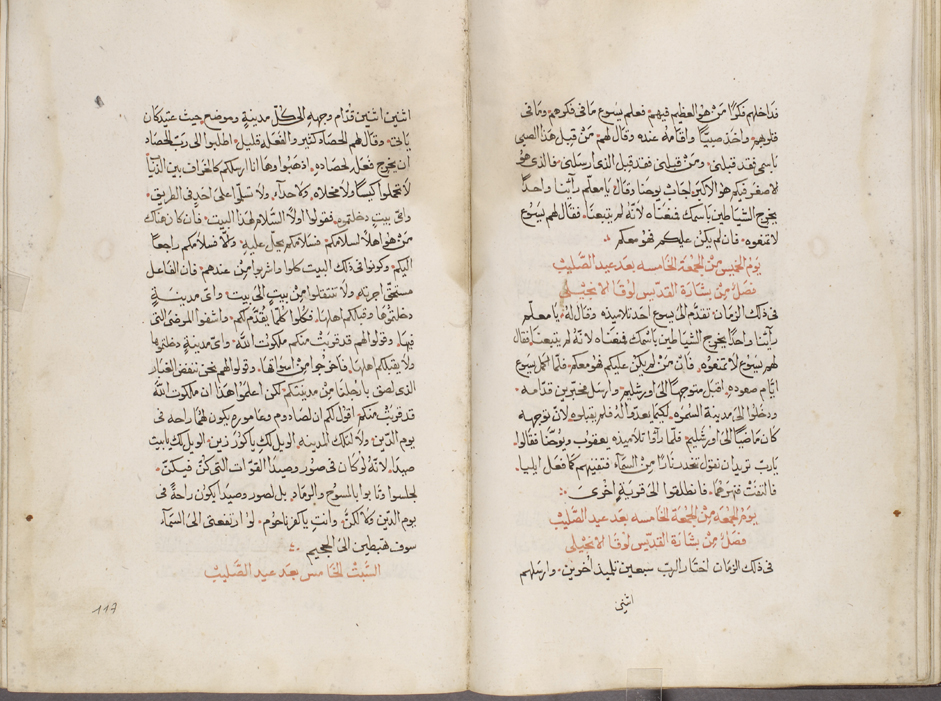 فداخلهم فكرًا مَنْ هو العظيم فيهم فعلم يسوع ما في فكرهم وما في
قلوبهم واخذ صبيًّا واقامهُ عنده وقال لهم مَنْ قبل هذا الصبي
باسمي فقد قبلني ومَنْ قبلني فقد قبل الذي ارسلني فالذي هو
الاصغر فيكم هو الاكبر اجاب يوحنا وقال يا معلّم رأينا واحدًا
يخرج الشياطين باسمك فمنعناه لانّه لم يتبعنا فقال لهم يسوع
لا تمنعوه فان لم يكن عليكم فهو معكم
يوم الخميس من الجمعة الخامسه بعد عيد الصليب
فصل من بشارة القديس لوقا الانجيلي
في ذلك الزمان تقدّم الى يسوع احد تلاميذه وقال له يا معلم
رأينا واحدًا يخرج الشياطين باسمك فمنعناه لانه لم يتبعنا فقال
لهم يسوع لا تمنعوه فانّ مَنْ لم يكن عليكم فهو معكم فلما اكمل يسوع
ايّام صعوده اقبل متوجهًا الى اورشليم وارسل مخبرين قدّامه
ودخلوا الى مدينة السمره لكيما يعدّوا لهُ فلم يقبلوه لانّ توجهه
كان ماضيًا الى اورشليم فلما رأوا تلاميذه يعقوب ويوحنا فقالوا
يا ربّ تريد ان نقول تنحدر نارًا من السمآء فتفنيهم كما فعل ايليا
فالتفت فنهرهما فانطلقوا الى قرية اخرى
يوم الجمعه من الجمعة الخامسه بعد عيد الصليب
فصل من بشارة القديس لوقا الانجيلي
في ذلك الزمان اختار الربّ سبعين تليمذ اخرين وارسلهم
اثنين
اثنين اثنين قدّام وجهه الى كلّ مدينةٍ وموضع حيث عتيد كان
ياتيه وقال لهم الحصاد كثير والفعله قليل اطلبوا الى ربّ الحصاد
ان يخرج فعله لحصاده اذهبوا وها انا ارسلكم كالخراف بين الذئاب
لا تحملوا كيسًا ولا مخلاه ولا حذآء ولا تسلّموا على احد في الطريق
وايّ بيتٍ دخلتموه فقولوا اولاً السلام لهذا البيت فان كان هناك
مَنْ هو اهلاً لسلامكم فسلامكم يحلّ عليه والاّ فسلامكم راجعًا
اليكم وكونوا في ذلك البيت كلوا واشربوا من عندهم فان الفاعل
مستحقّ اجرته ولا تنتقلوا من بيت الى بيت وايّ مدينةٍ
دخلتموها وقبلكم اهلها فكلوا كلّما يُقدّم لكم واشفوا المرضى التي
فيها وقولوا لهم قد قربت منكم ملكوت الله وايّ مدينةٍ دخلتموها
ولا يقبلكم اهلها فاخرجوا من اسواقها وقولوا لهم نحن ننفض الغبار
الذي لصق بارجلنا من مدينتكم لكن اعلموا هذا ان ملكوت الله
قد قربت منكم اقول لكم ان لصادوم وعاموره يكون لهما راحه في
يوم الدين ولا لتلك المدينه الويل لكِ يا كورزين الويل لكِ يا بيت
صيدا لانّهُ لو كان في صور وصيدا القوّات التي كنّ فيكنّ
لجلسوا وتابوا بالمسوح والرماد بل لصور وصيدا يكون راحةً في
يوم الدين ولا لكنّ وانتِ يا كفرناحوم لو ارتفعتي الى السمآء
سوف تهبطين الى الجحيم
السبت الخامس بعد عيد الصليب
117